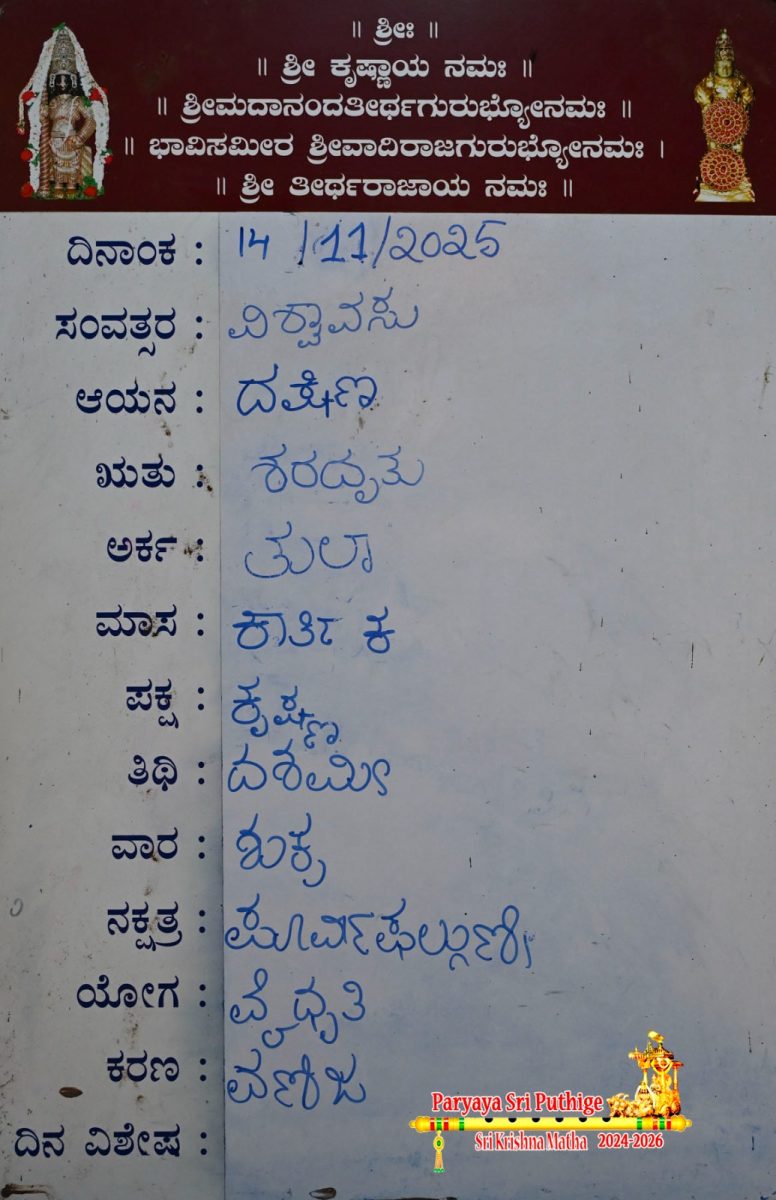 ॥ ಶ್ರೀಃ ॥
॥ ಶ್ರೀ ಕೃಷ್ಣಾಯ ನಮಃ ॥
॥ ಶ್ರೀಮದಾನಂದತೀರ್ಥಗುರುಭ್ಯೋನಮಃ ॥
॥ ಭಾವಿಸಮೀರ ಶ್ರೀವಾದಿರಾಜಗುರುಭ್ಯೋನಮಃ ।
॥ ಶ್ರೀ ತೀರ್ಥರಾಜಾಯ ನಮಃ ॥
ದಿನಾಂಕ : 14 /11/2025
ಸಂವತ್ಸರ : ವಿಶ್ವಾವಸು
ಆಯನ : ದಕ್ಷಿಣ
ಋತು : ಶರದೃತು
ಅರ್ಕ : ತುಲಾ
ಮಾಸ : ಕಾರ್ತಿಕ
ಪಕ್ಷ : ಕೃಷ್ಣ
ತಿಥಿ : ದಶಮೀ
ವಾರ : ಶುಕ್ರ
ನಕ್ಷತ್ರ : ಪೂರ್ವಾಫಲ್ಗುಣಿ
ಯೋಗ : ವೈಧೃತಿ
ಕರಣ : ವಣಿಜ
ದಿನ ವಿಶೇಷ :
Paryaya Sri Puthige
Sri Krishna Matha 2024-2026